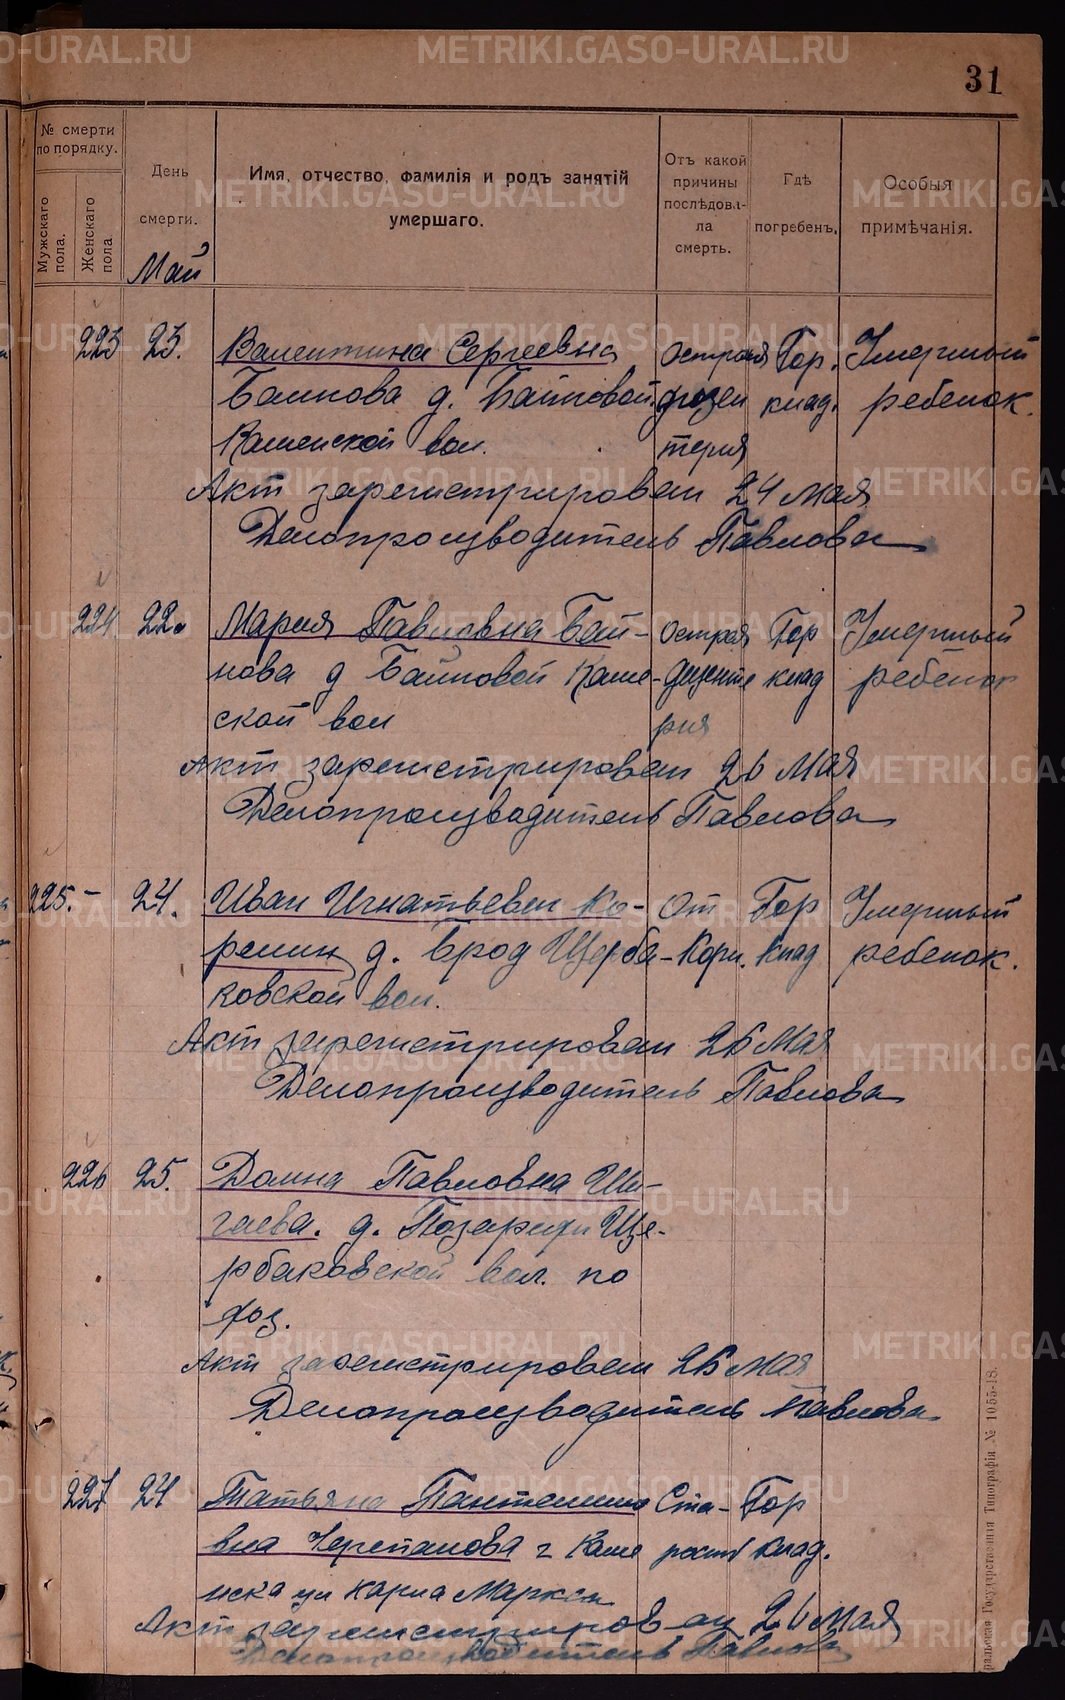 METRIKI.GASO-URAL.RU
31
№ смерти по порядку.
Мужскаго пола.
Женскаго пола.
День смерти.
Май
Имя, отчество, фамилія и родъ занятій умершаго.
Отъ какой причины послѣдова-ла смерть.
Гдѣ погребенъ.
Особыя примѣчанія.
223 23. Валентина Сергеевна острая Гор. Умерший
Баинова д. Байновой дизен клад. ребенок.
Каменской вол. терия
Акт зарегистрирован 24 мая
Делопроизводитель Павлова
224 22. Мария Павловна Бай- острая Гор Умерший
нова д Байновой Каме- дезенте клад ребенок
ской вол рия
Акт зарегистрирован 26 мая
Делопроизводитель Павлова
225. - 24. Иван Игнатьевич Ко- От Гор Умерший
релин д. Брод Щерба- Кори. клад ребенок.
ковской вол.
Акт зарегистрирован 26 мая
Делопроизводитель Павлова
226 25. Домна Павловна Ши-
гаева. д. Позарихи Ще-
рбаковской вол. по
роз.
Акт зарегистрирован 26 мая
Делопроизводитель Павлова
227 24 Татьяна Пантелимо Ста- Гор
вна Черепанова г Каме рости клад.
нска ул Карла Маркса
Акт зарегистрирован 26 мая
Делопроизводитель Павлова
Типографія № 1055-18.